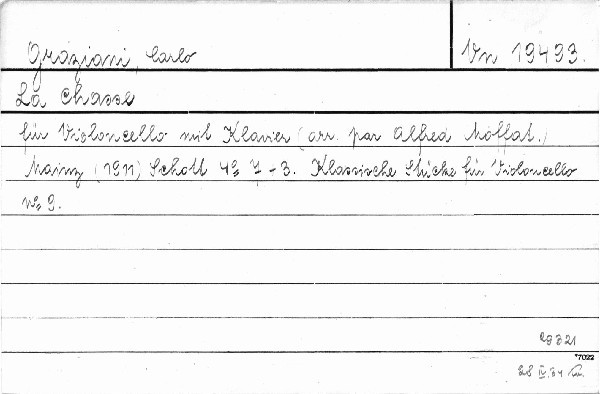 Graziani, Carlo Vn 19493.
La Chasse
für Violoncello mit Klavier (arr. par Alfred Moffat.)
Mainz (1911) Schott 4º 7 + 3. Klassische Stücke für Violoncello
nº 9.
*7022
28 IV. 34